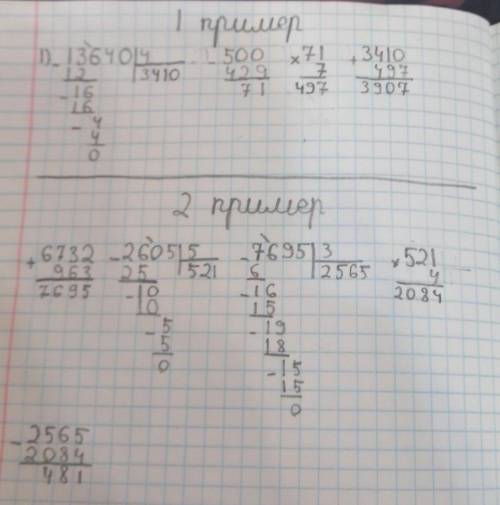 1 пример
1) - 13640 | 4   - 500   × 71   + 3410
12   3410   429   7   497
- 16   71   497   3907
16
- 4
4
0
2 пример
+ 6732   - 2605 | 5   - 7695 | 3   × 521
963   25   521   6   2565   4
7695   - 10   - 16   2084
10   15
- 5   - 19
5   18
0   - 15
15
0
- 2565
2084
481